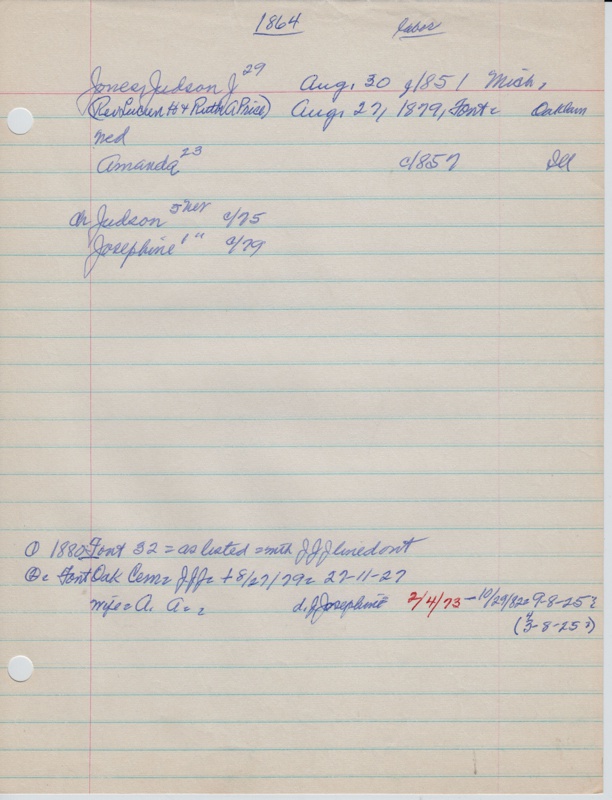 1864 labor
Jones, Judson J 29 Aug. 30 1851 Mich,
(Rev Lucien H + Ruth A Price) Aug, 27, 1879, Font = Oaklawn
ned
Amanda 23 c/857 Ill
ch Judson 5 ner c/75
Josephine 1 " c/79
① 1880 Font 32 = as listed = mth J J J
② = Font Oak Cem = J J J = + 8/27/79 = 27-11-27
wife = A. A = = d. J Josephine 2/4/73 - 10/29/82 = 9-8-25 ?
(3-8-25 ?)